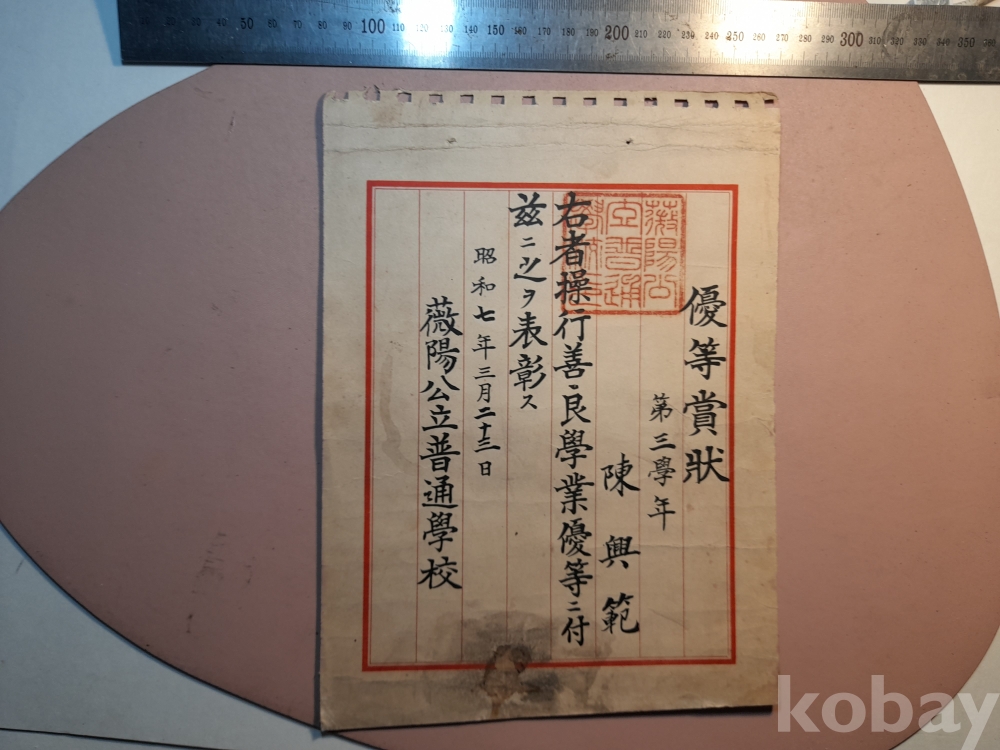 優等賞狀
第三學年
陳興範
右者操行善良學業優等ニ付
茲ニ之ヲ表彰ス
昭和七年三月二十三日
薇陽公立普通學校
薇陽公
立普通
50 100 110 120 130 140 150 160 170 180 190 200 210 220 230 240 250 260 270 280 290 300 310 320 330 340 350 360
kobay